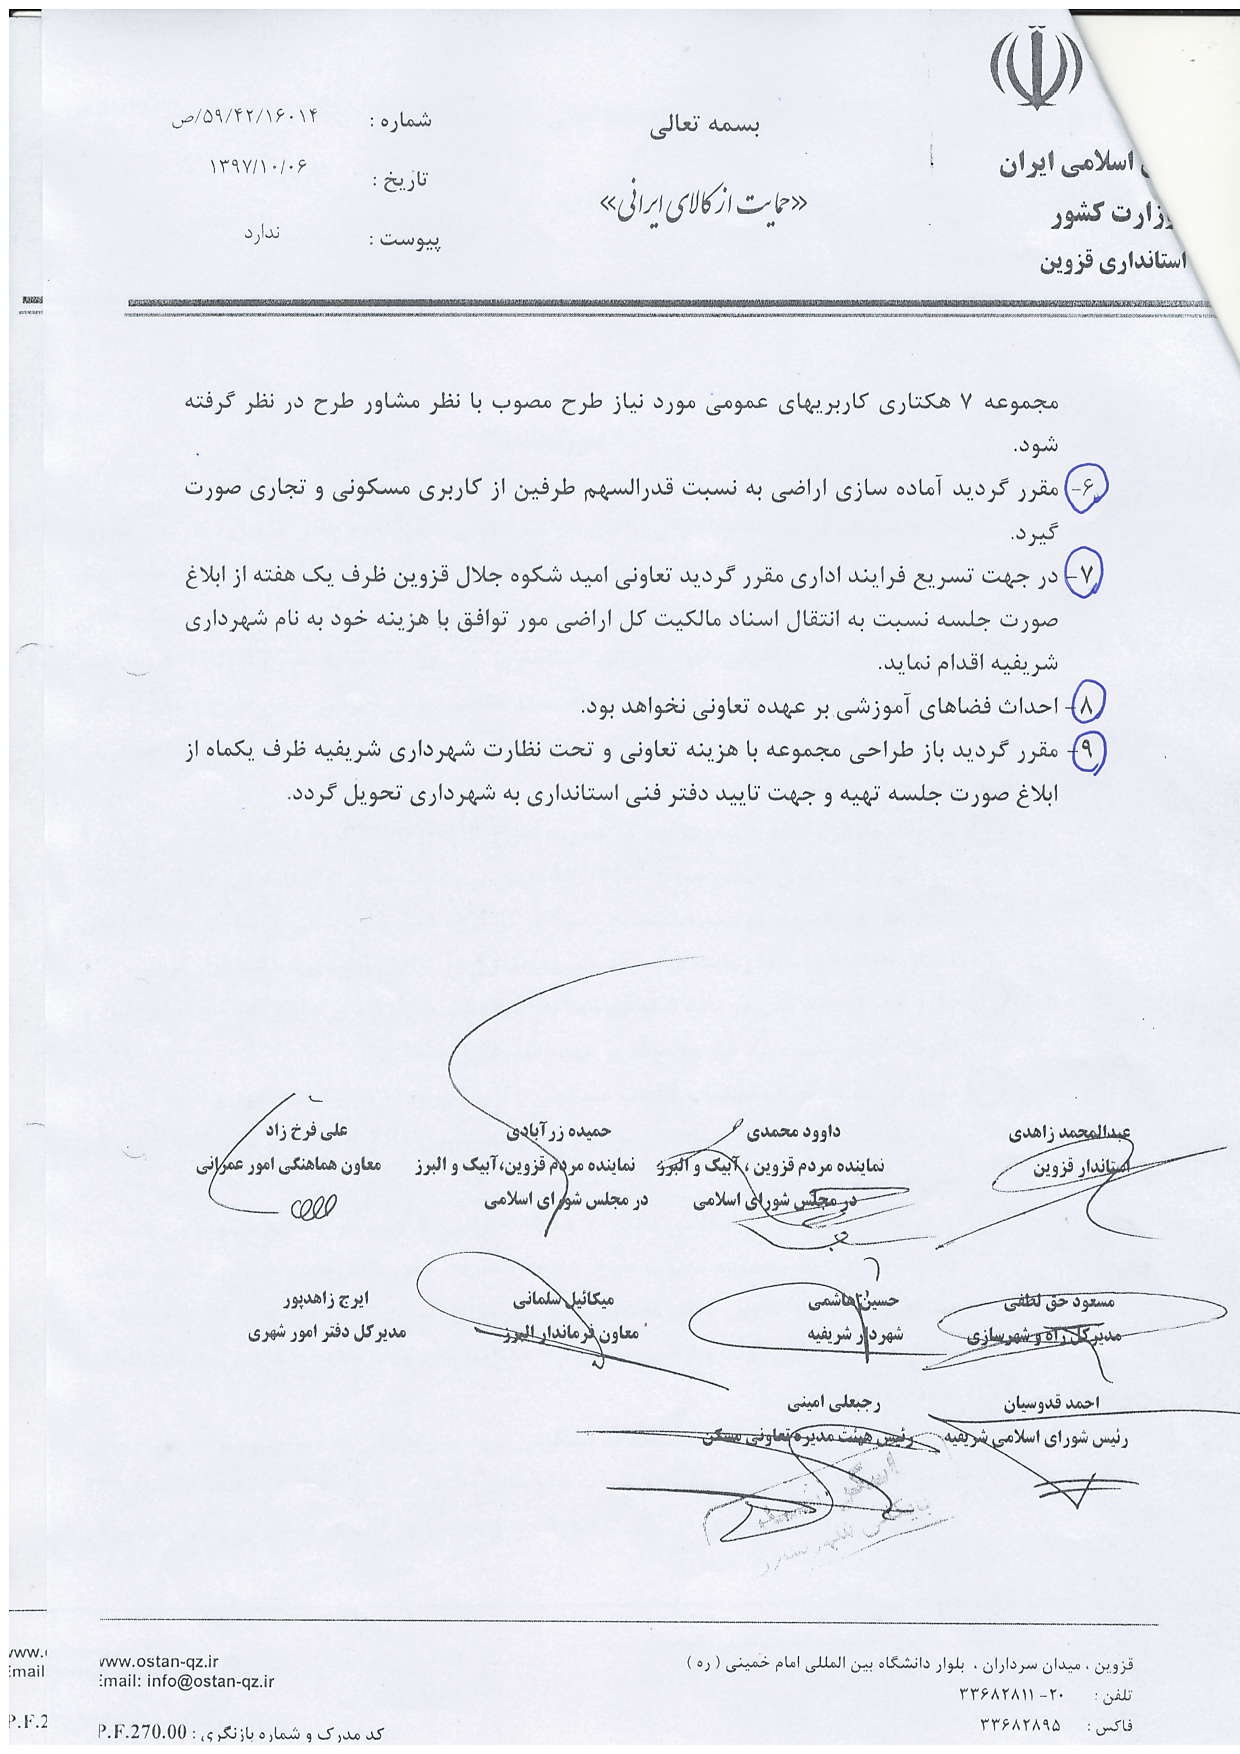 ی اسلامی ایران
وزارت کشور
استانداری قزوین
بسمه تعالی
«حمایت از کالای ایرانی»
شماره : ۵۹/۴۲/۱۶۰۱۴/ص
تاریخ : ۱۳۹۷/۱۰/۰۶
پیوست : ندارد
مجموعه ۷ هکتاری کاربریهای عمومی مورد نیاز طرح مصوب با نظر مشاور طرح در نظر گرفته
شود.
۶- مقرر گردید آماده سازی اراضی به نسبت قدرالسهم طرفین از کاربری مسکونی و تجاری صورت
گیرد.
۷- در جهت تسریع فرایند اداری مقرر گردید تعاونی امید شکوه جلال قزوین ظرف یک هفته از ابلاغ
صورت جلسه نسبت به انتقال اسناد مالکیت کل اراضی مور توافق با هزینه خود به نام شهرداری
شریفیه اقدام نماید.
۸- احداث فضاهای آموزشی بر عهده تعاونی نخواهد بود.
۹- مقرر گردید باز طراحی مجموعه با هزینه تعاونی و تحت نظارت شهرداری شریفیه ظرف یکماه از
ابلاغ صورت جلسه تهیه و جهت تایید دفتر فنی استانداری به شهرداری تحویل گردد.
عبدالمحمد زاهدی
استاندار قزوین
داوود محمدی
نماینده مردم قزوین ، آبیک و البرز
در مجلس شورای اسلامی
حمیده زرآبادی
نماینده مردم قزوین،آبیک و البرز
در مجلس شورای اسلامی
علی فرخ زاد
معاون هماهنگی امور عمرانی
مسعود حق لطفی
مدیرکل راه و شهرسازی
حسین هاشمی
شهردار شریفیه
میکائیل سلمانی
معاون فرماندار البرز
ایرج زاهدپور
مدیرکل دفتر امور شهری
احمد قدوسیان
رئیس شورای اسلامی شریفیه
رجبعلی امینی
رئیس هیئت مدیره تعاونی مسکن
قزوین ، میدان سرداران ، بلوار دانشگاه بین المللی امام خمینی ( ره )
تلفن : ۲۰-۳۳۶۸۲۸۱۱
فاکس : ۳۳۶۸۲۸۹۵
www.ostan-qz.ir
Email: info@ostan-qz.ir
کد مدرک و شماره بازنگری : P.F.270.00
www.
Email
P.F.2